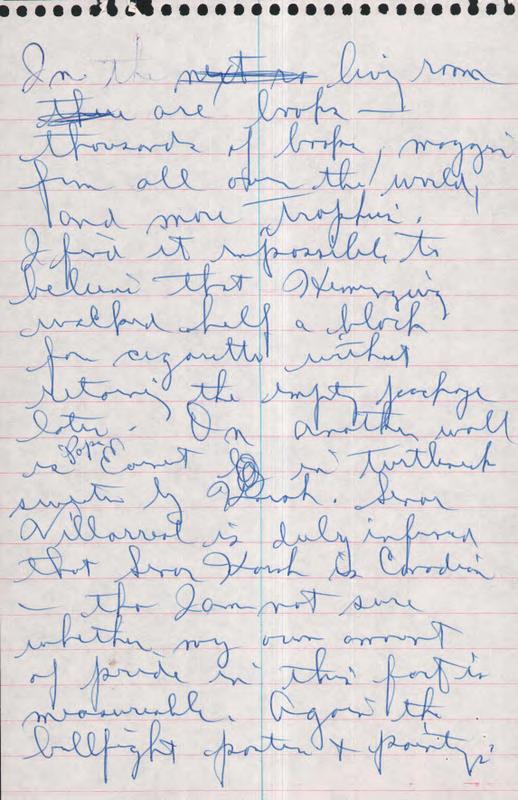 In the next ro living room
there are books —
thousands of books, magazin
from all over the world,
and more trophies.
I find it impossible to
believe that Hemingway
walked half a block
for cigarettes without
retaining the empty package
later. On another wall
is Papa in turtleneck
sweater by Karsh. Senor
Villarreal is duly informed
that Senor Karsh is Canadian
— tho I am not sure
whether my own amount
of pride in this fact is
measureable. Again the
bullfight posters + paintings